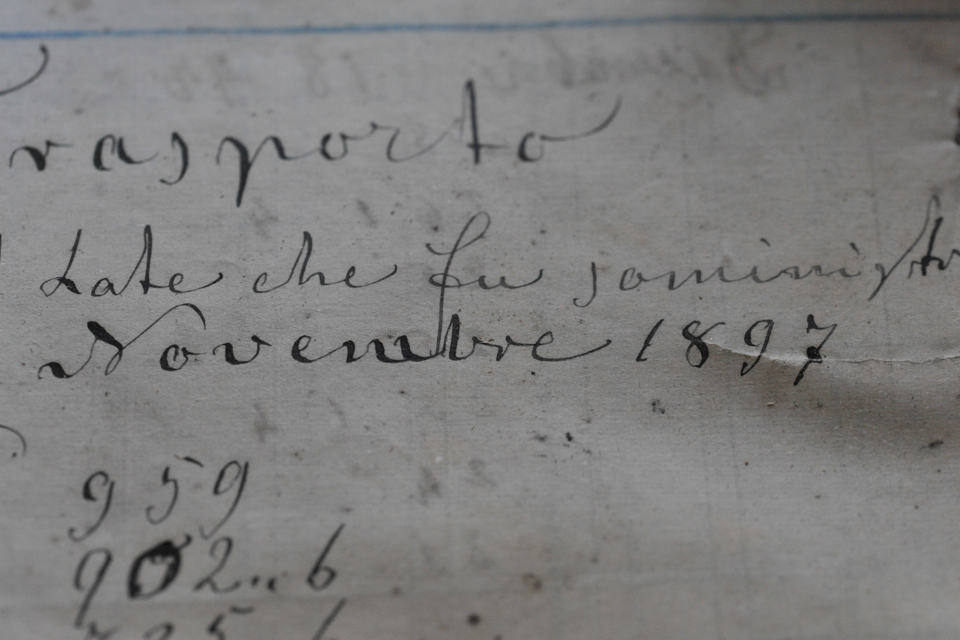 rasporto
Late che fu soministr
Novembre 1897
959
902.. 6